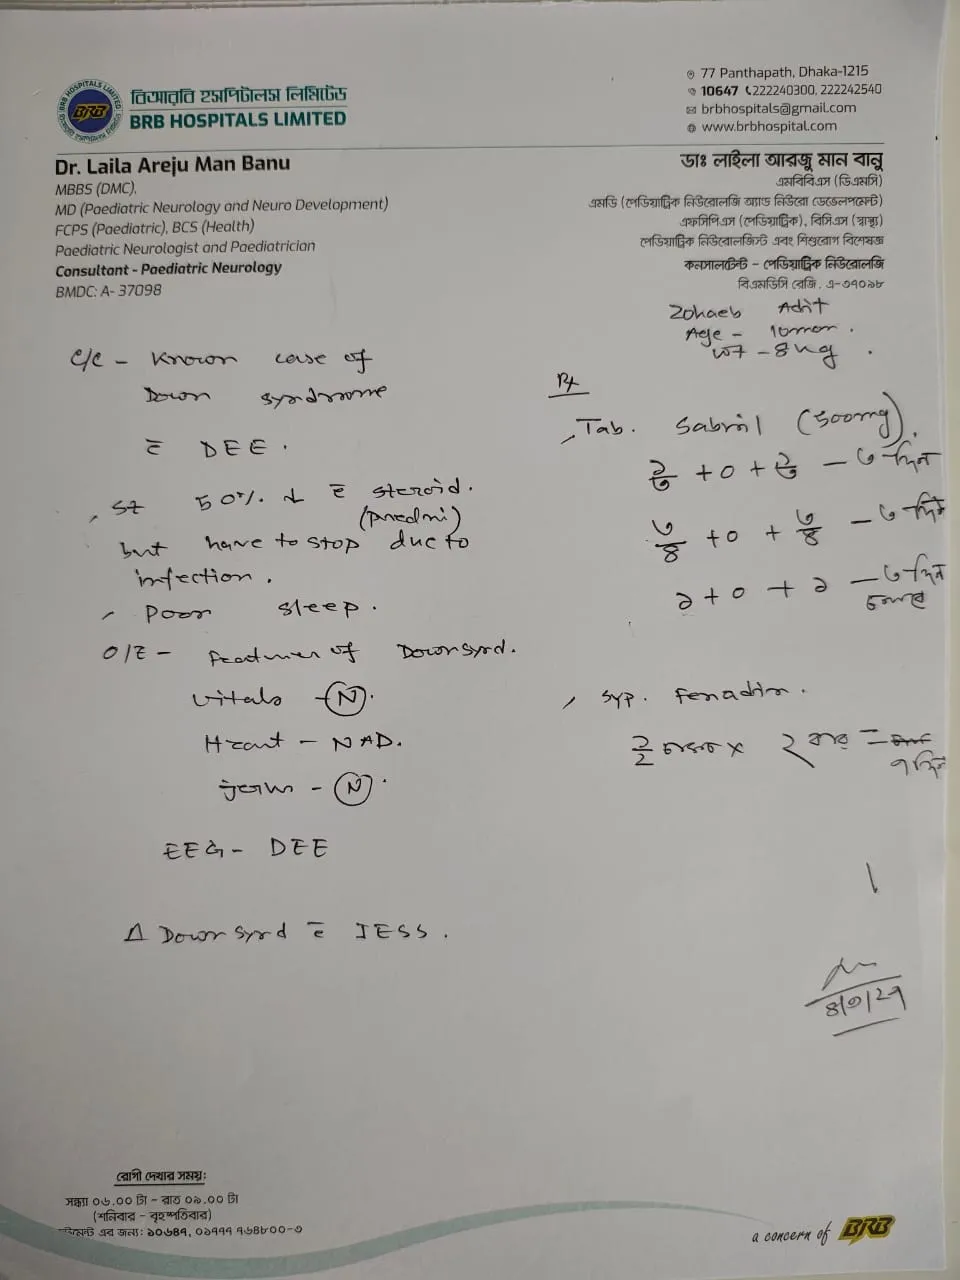 বিআরবি হসপিটালস লিমিটেড
BRB HOSPITALS LIMITED
BRB HOSPITALS LIMITED
BRB
77 Panthapath, Dhaka-1215
10647 222240300, 222242540
brbhospitals@gmail.com
www.brbhospital.com
Dr. Laila Areju Man Banu
MBBS (DMC),
MD (Paediatric Neurology and Neuro Development)
FCPS (Paediatric), BCS (Health)
Paediatric Neurologist and Paediatrician
Consultant - Paediatric Neurology
BMDC: A- 37098
ডাঃ লাইলা আরজু মান বানু
এমবিবিএস (ডিএমসি)
এমডি (পেডিয়াট্রিক নিউরোলজি অ্যান্ড নিউরো ডেভেলপমেন্ট)
এফসিপিএস (পেডিয়াট্রিক), বিসিএস (স্বাস্থ্য)
পেডিয়াট্রিক নিউরোলজিস্ট এবং শিশুরোগ বিশেষজ্ঞ
কনসালটেন্ট - পেডিয়াট্রিক নিউরোলজি
বিএমডিসি রেজি. এ-৩৭০৯৮
Zohaeb Adit
Age - 10mon.
WT - 8 kg.
C/C - Known case of
Down syndrome
c̄ DEE.
, SZ 50% ↓ c̄ steroid.
(predni)
but have to stop due to
infection.
, Poor sleep.
O/E - features of Down synd.
Vitals - (N).
Heart - NAD.
- (N).
EEG - DEE
Δ Down synd c̄ IESS.
Rx
, Tab. Sabril (500mg).
+ 0 + - ৩ দিন
৩/৪ + 0 + ৩/৪ - ৩ দিন
১ + 0 + ১ - ৩ দিন
চলবে
, Syp. Fenadin.
১/২ চামচ x ২ বার =
৭ দিন
রোগী দেখার সময়:
সন্ধ্যা ০৬.০০ টা - রাত ০৯.০০ টা
(শনিবার - বৃহস্পতিবার)
এর জন্য: ১০৬৪৭, ০১৭৭৭ ৭৬৪৮০০-৩
a concern of BRB